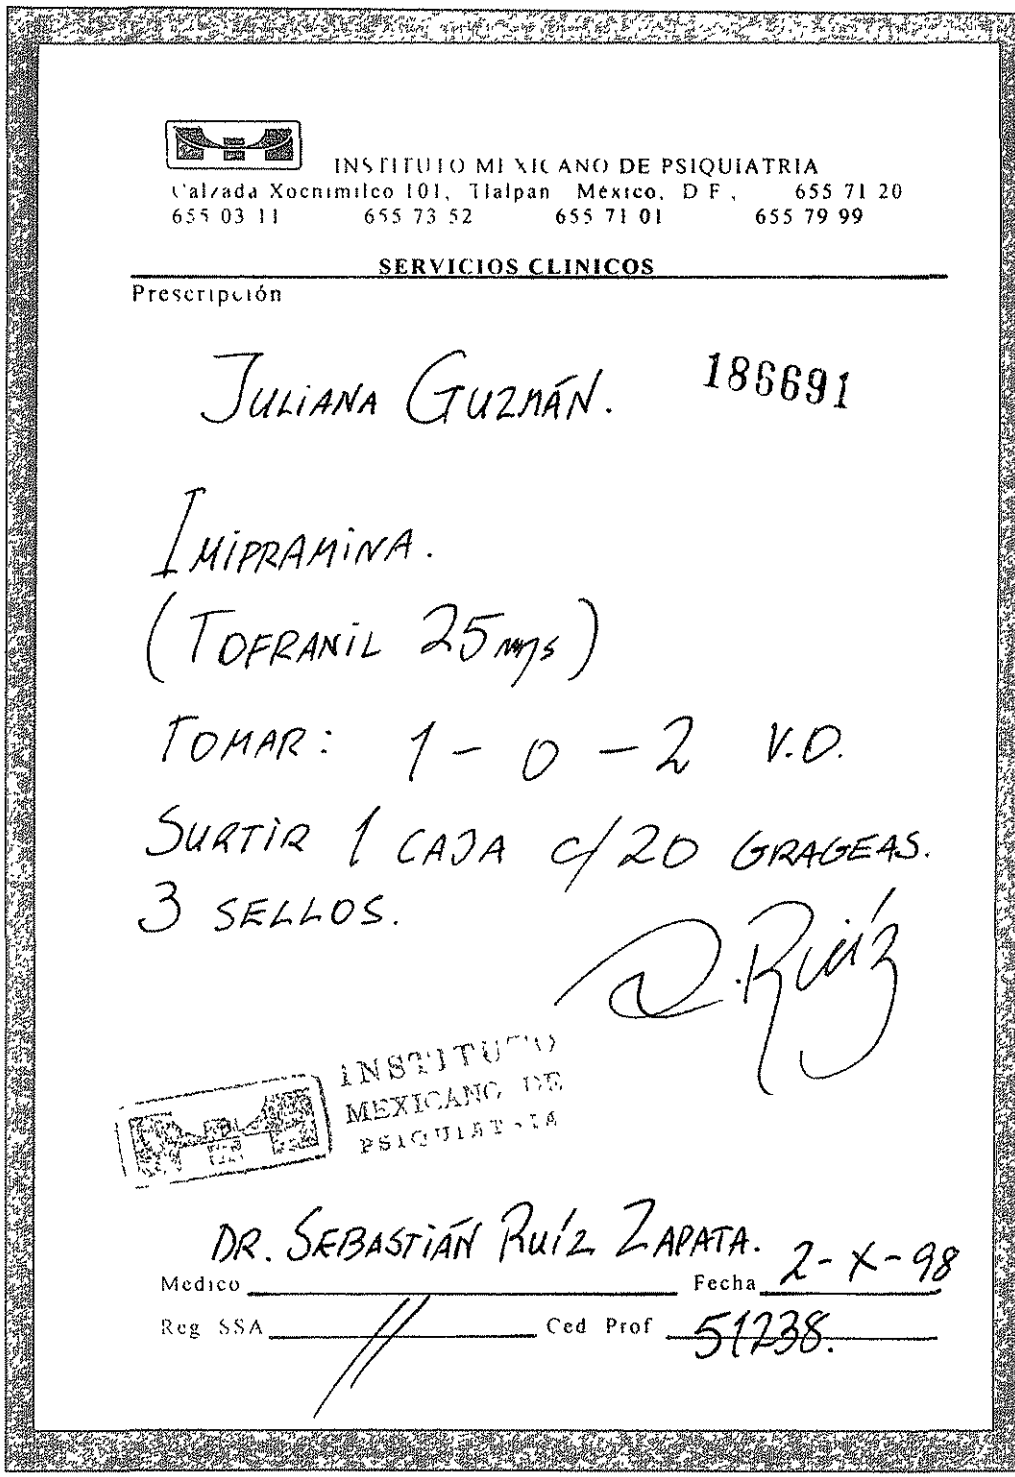 INSTITUTO MEXICANO DE PSIQUIATRIA
Calzada Xochimilco 101, Tlalpan México, D F, 655 71 20
655 03 11 655 73 52 655 71 01 655 79 99
SERVICIOS CLINICOS
Prescripción
JULIANA GUZMÁN. 186691
IMIPRAMINA.
(TOFRANIL 25 mgs)
TOMAR: 1 - 0 - 2 V.O.
SURTIR 1 CAJA c/20 GRAGEAS.
3 SELLOS.
S. Ruíz
INSTITUTO
MEXICANO DE
PSIQUIATRIA
DR. SEBASTIÁN RUÍZ ZAPATA. 2-X-98
Medico Fecha
Reg SSA Ced Prof 51238.